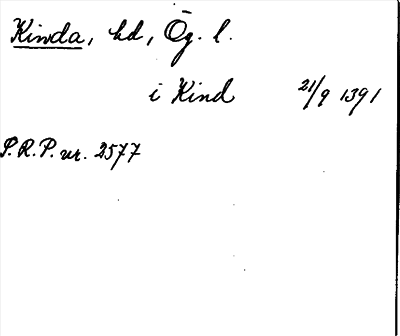 Kinda, hd, Ög. l.
i Kind 21/9 1391
S.R.P. nr. 2577